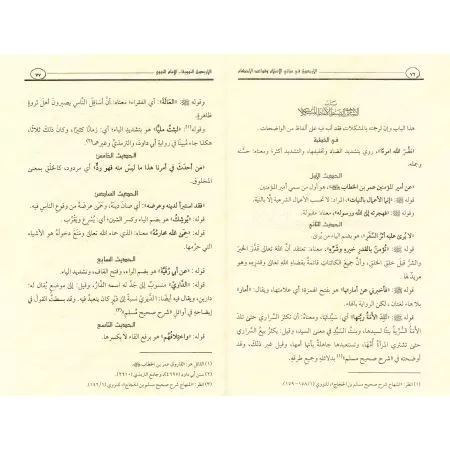 ٧٦ الأربعين في مباني الإسلام وقواعد الأحكام
باب
الإشارات إلى ضبط الألفاظ المشكلات
هذا الباب وإن ترجمته بالمشكلات فقد أنبه فيه على ألفاظ من الواضحات.
في الخطبة
«نضّر الله امرءًا»: روي بتشديد الضاد وتخفيفها، والتشديد أكثر؛ ومعناه: حسّنه
وجمله.
الحديث الأول
«عن أمير المؤمنين عمر بن الخطاب ﷺ»: هو أول من سمي أمير المؤمنين
قوله ﷺ: «إنما الأعمال بالنيات»: المراد: لا تحسب الأعمال الشرعية إلّا بالنية.
قوله ﷺ: «فهجرته إلى الله ورسوله»؛ معناه: مقبولة.
الحديث الثاني
«لا يرى عليه أثر السفر»: هو بضم الياء من يرى.
قوله: «تؤمن بالقدر خيره وشره»: معناه: تعتقد أنّ الله تعالى قدّر الخير
والشر قبل خلق الخلق، وأنّ جميع الكائنات قائمة بقضاء الله تعالى وقدره، وهو
مريد لها.
قوله: «فأخبرني عن أمارتها» هو بفتح الهمزة؛ أي علامتها، ويقال: «أمار»
بلا هاء لغتان، لكن الرواية بالهاء.
قوله: «تلد الأمة ربتها» أي: سيّدتها، ومعناه: أن تكثر السراري حتى تلد
الأمة السرّيّة بنتًا لسيدها، وبنت السيد في معنى السيد، وقيل: يكثر بيع السراري
حتى تشتري المرأة أمّها، وتستعبدها جاهلة بأنها أمها، وقيل غير ذلك، وقد
أوضحته في «شرح صحيح مسلم»(١) بدلائله وجميع طرقه.
(١) انظر: «المنهاج شرح صحيح مسلم بن الحجاج» للنووي (١/ ١٥٨-١٥٩).
الأربعون النووية ـ الإمام النووي ٧٧
وقوله ﷺ: «العالة»: أي الفقراء؛ معناه: أنّ أسافل الناس يصيرون أهل ثروة
ظاهرة.
وقوله(١): «لبثت مليًّا» هو بتشديد الياء؛ أي: زمانًا كثيرًا، وكان ذلك ثلاثًا،
هكذا جاء مبينًا في رواية أبي داود، والترمذي وغيرهما(٢).
الحديث الخامس
«من أحدث في أمرنا هذا ما ليس منه فهو رد» أي مردود، كالخلق بمعنى
المخلوق.
الحديث السادس
«فقد استبرأ لدينه وعرضه»: أي: صان دينه، وحمى عرضه من وقوع الناس فيه.
قوله: «يوشك»: هو بضم الياء وكسر الشين؛ أي: يُسرع ويقرُب.
قوله: «حمى الله محارمه»: معناه: الذي حماه الله تعالى ومنع دخوله هو الأشياء
التي حرّمها.
الحديث السابع
قوله: «عن أبي رقية» هو بضم الراء، وفتح القاف، وتشديد الياء.
«الداري»: منسوب إلى جدٍّ له اسمه الدّار، وقيل: إلى موضع يُقال له:
دارين، ويقال فيه أيضًا: الديري نسبة إلى دير كان يتعبد فيه. وقد بسطت القول في
إيضاحه في أوائل «شرح صحيح مسلم»(٣).
الحديث التاسع
قوله: «واختلافهم» هو برفع الفاء لا بكسرها.
(١) القائل هو: الفاروق عمر بن الخطاب
(٢) سنن أبي داود (٤٦٩٥)، وجامع الترمذي (٢٦١٠).
(٣) انظر: «المنهاج شرح صحيح مسلم بن الحجاج» للنووي (١/ ١٤٢).